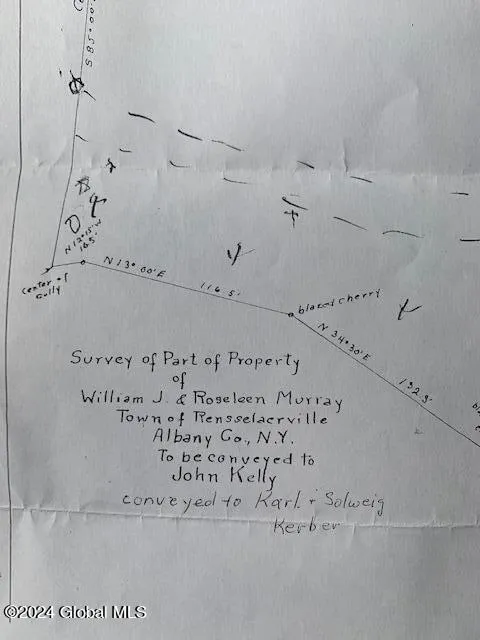 S85°00'
N 12°15' W
16.5'
center of
Gully
N 13° 00' E
116.5'
blazed cherry
N 34°30' E
132.9'
Survey of Part of Property
of
William J. & Roseleen Murray
Town of Rensselaerville
Albany Co., N.Y.
To be conveyed to
John Kelly
conveyed to Karl + Solweig
Kerber
©2024 Global MLS